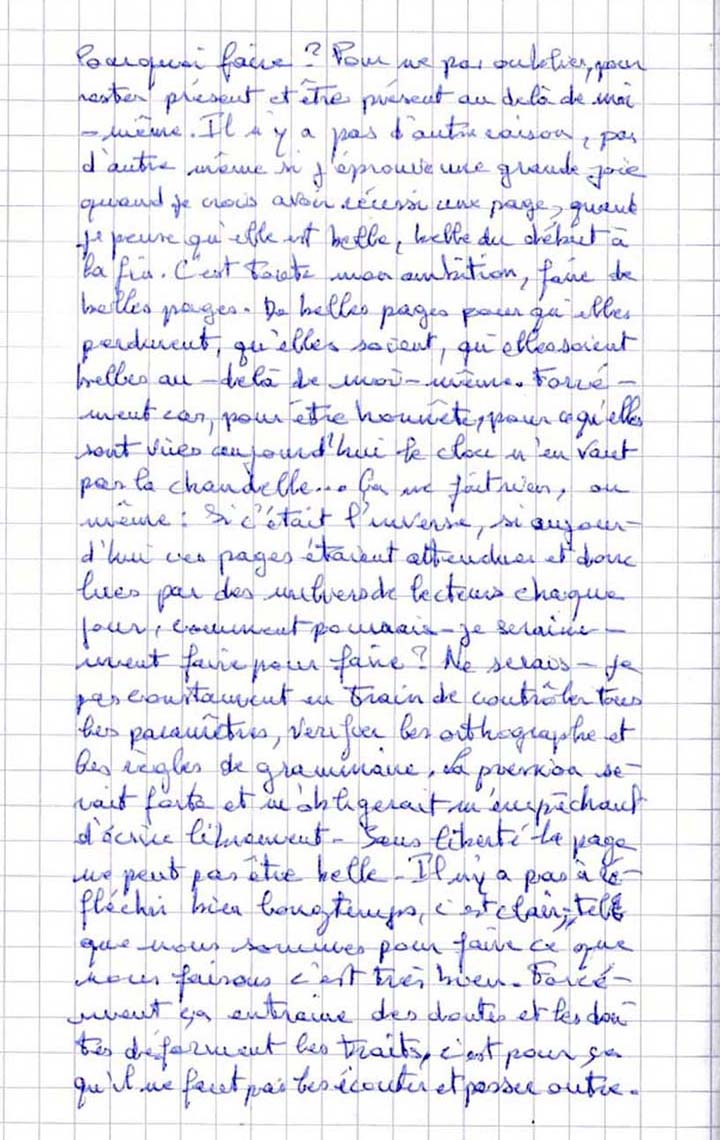 Pourquoi faire ? Pour ne pas oublier, pour
rester présent et être présent au delà de moi
-même. Il n'y a pas d'autre raison, pas
d'autre même si j'éprouve une grande joie
quand je crois avoir réussi une page, quand
je pense qu'elle est belle, belle du début à
la fin. C'est toute mon ambition, faire de
belles pages. De belles pages pour qu'elles
perdurent, qu'elles soient, qu'elles soient
belles au-delà de moi-même. Forcé-
ment car, pour être honnête, pour ce qu'elles
sont vues aujourd'hui le clou n'en vaut
pas la chandelle... Ça ne fait rien, ou
même : Si c'était l'inverse, si aujour-
d'hui ces pages étaient attendues et donc
lues par des milliers de lecteurs chaque
jour, comment pourrais-je sereine-
ment faire pour faire ? Ne serais-je
pas constamment en train de contrôler tous
les paramètres, vérifier les orthographe et
les règles de grammaire. La pression se-
rait forte et m'obligerait m'empêchant
d'écrire librement. Sans liberté la page
ne peut pas être belle. Il n'y a pas à ré-
fléchir bien longtemps, c'est clair, tels
que nous sommes pour faire ce que
nous faisons c'est très bien. Forcé-
ment ça entraine des doutes et les dou-
tes déforment les traits, c'est pour ça
qu'il ne faut pas les écouter et passer outre.